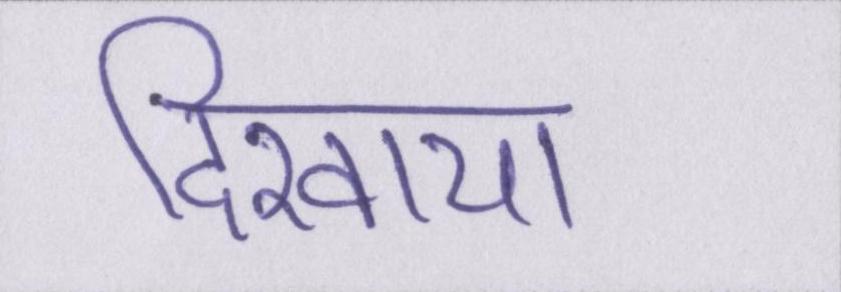 दिखाया